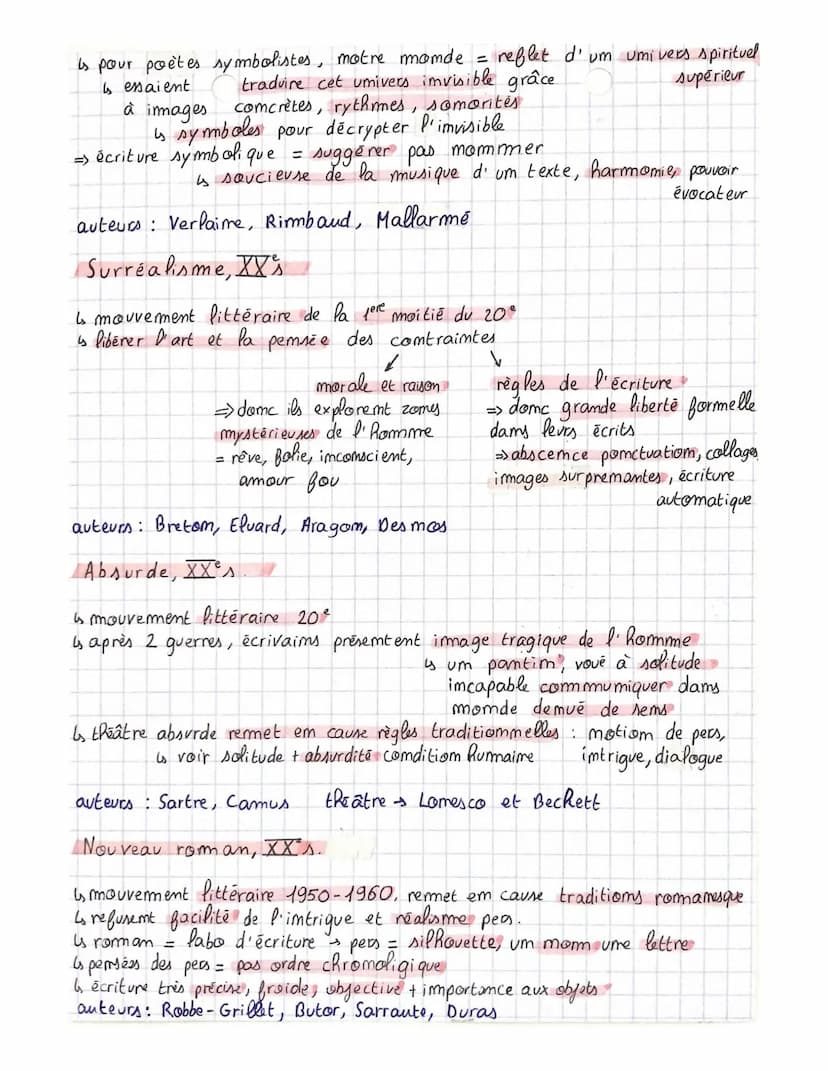 ↳ pour poètes symbolistes, notre monde = reflet d'un univers spirituel
supérieur
↳ essaient traduire cet univers invisible grâce
à images concrètes, rythmes, sonorités
↳ symboles pour décrypter l'invisible
⇒ écriture symbolique = suggérer pas nommer
↳ soucieuse de la musique d'un texte, harmonie, pouvoir
évocateur
auteurs : Verlaine, Rimbaud, Mallarmé
Surréalisme, XXe s
↳ mouvement littéraire de la 1ere moitié du 20e
↳ libérer l'art et la pensée des contraintes
↙ ↘
morale et raison
⇒ donc ils explorent zones
mystérieuses de l'Homme
= rêve, folie, inconscient,
amour fou
règles de l'écriture
⇒ donc grande liberté formelle
dans leurs écrits
⇒ abscence ponctuation, collage,
images surprenantes, écriture
automatique
auteurs : Breton, Eluard, Aragon, Desnos
Absurde, XXe s.
↳ mouvement littéraire 20e
↳ après 2 guerres, écrivains présentent image tragique de l'Homme
↳ un pantin, voué à solitude
incapable communiquer dans
monde denué de sens
↳ théâtre absurde remet en cause règles traditionnelles : notion de pers,
intrigue, dialogue
↳ voir solitude + absurdité condition humaine
auteurs : Sartre, Camus théâtre → Ionesco et Beckett
Nouveau roman, XXe s.
↳ mouvement littéraire 1950-1960, remet en cause traditions romanesque
↳ refusent facilité de l'intrigue et réalisme pers.
↳ roman = labo d'écriture → pers = silhouette, un nom une lettre
↳ pensées des pers = pas ordre chronoligique
↳ écriture très précise, froide, objective + importance aux objets
auteurs : Robbe-Grillet, Butor, Sarraute, Duras